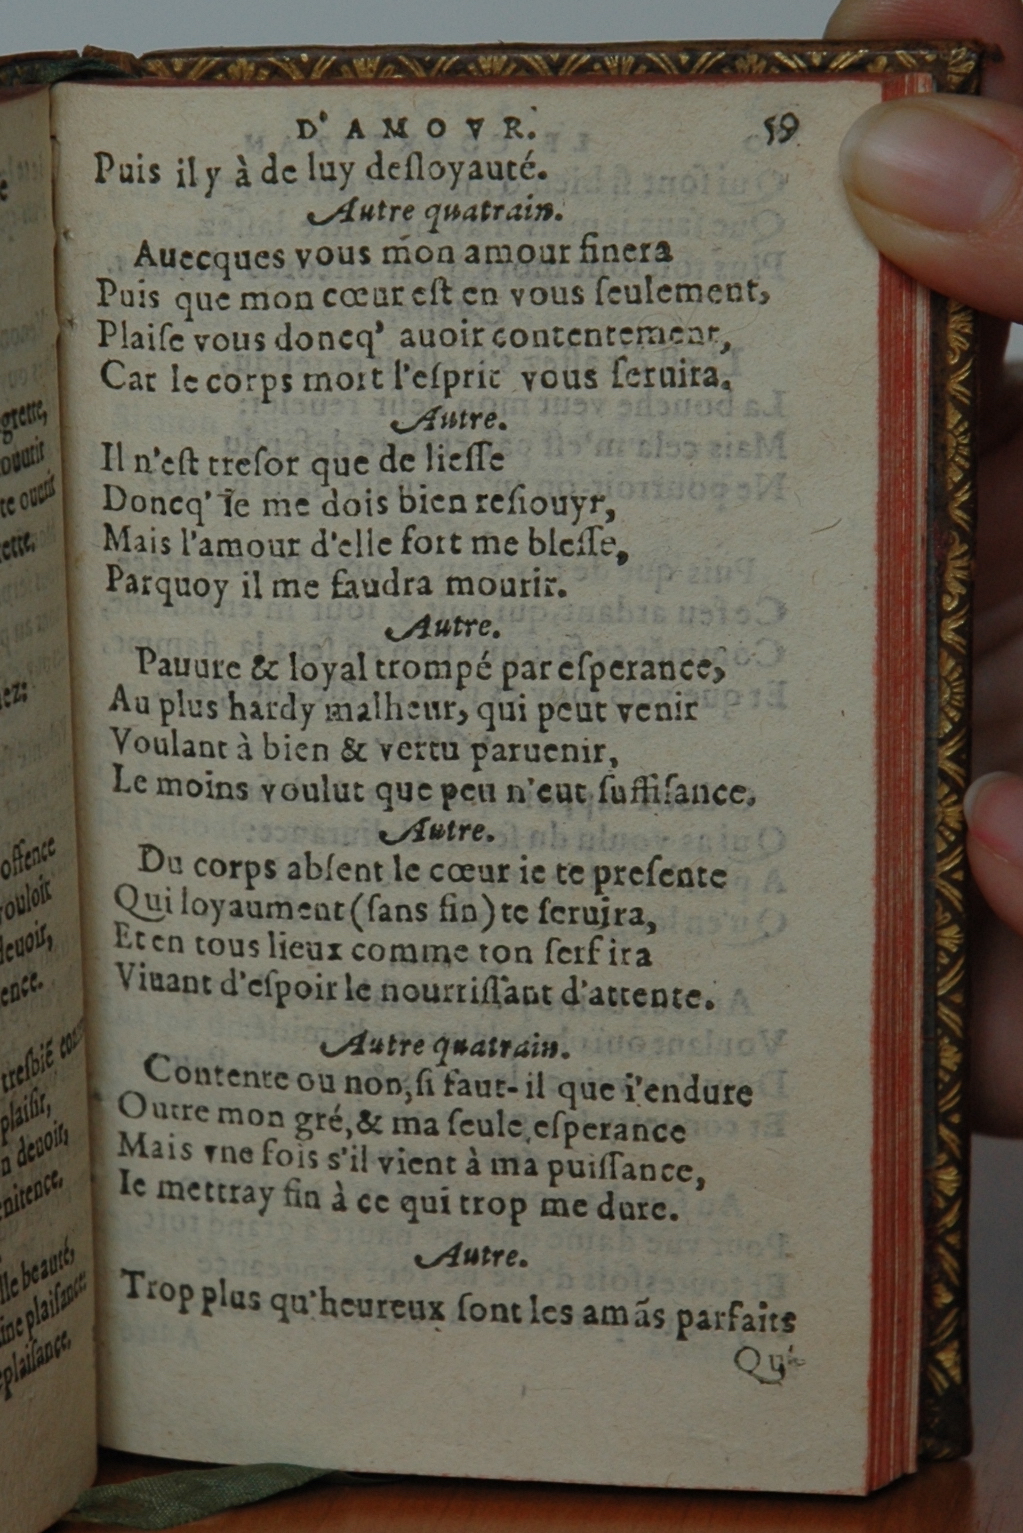 D'AMOVR. 59
Puis il y à de luy desloyauté.
Autre quatrain.
Auecques vous mon amour finera
Puis que mon cœur est en vous seulement,
Plaise vous doncq' auoir contentement,
Car le corps mort l'esprit vous seruira.
Autre.
Il n'est tresor que de liesse
Doncq' Ie me dois bien resiouyr,
Mais l'amour d'elle fort me blesse,
Parquoy il me faudra mourir.
Autre.
Pauure & loyal trompé par esperance,
Au plus hardy malheur, qui peut venir
Voulant à bien & vertu paruenir,
Le moins voulut que peu n'eut suffisance.
Autre.
Du corps absent le cœur ie te presente
Qui loyaument (sans fin) te seruira,
Et en tous lieux comme ton serf ira
Viuant d'espoir le nourrissant d'attente.
Autre quatrain.
Contente ou non, si faut-il que i'endure
Outre mon gré, & ma seule esperance
Mais vne fois s'il vient à ma puissance,
Ie mettray fin à ce qui trop me dure.
Autre.
Trop plus qu'heureux sont les amãs parfaits
grette,
te ouurir
ette.
ez:
offence
deuoir,
ence.
plaisir,
n deuoir,
enitence.
lle beauté,
plaisance.